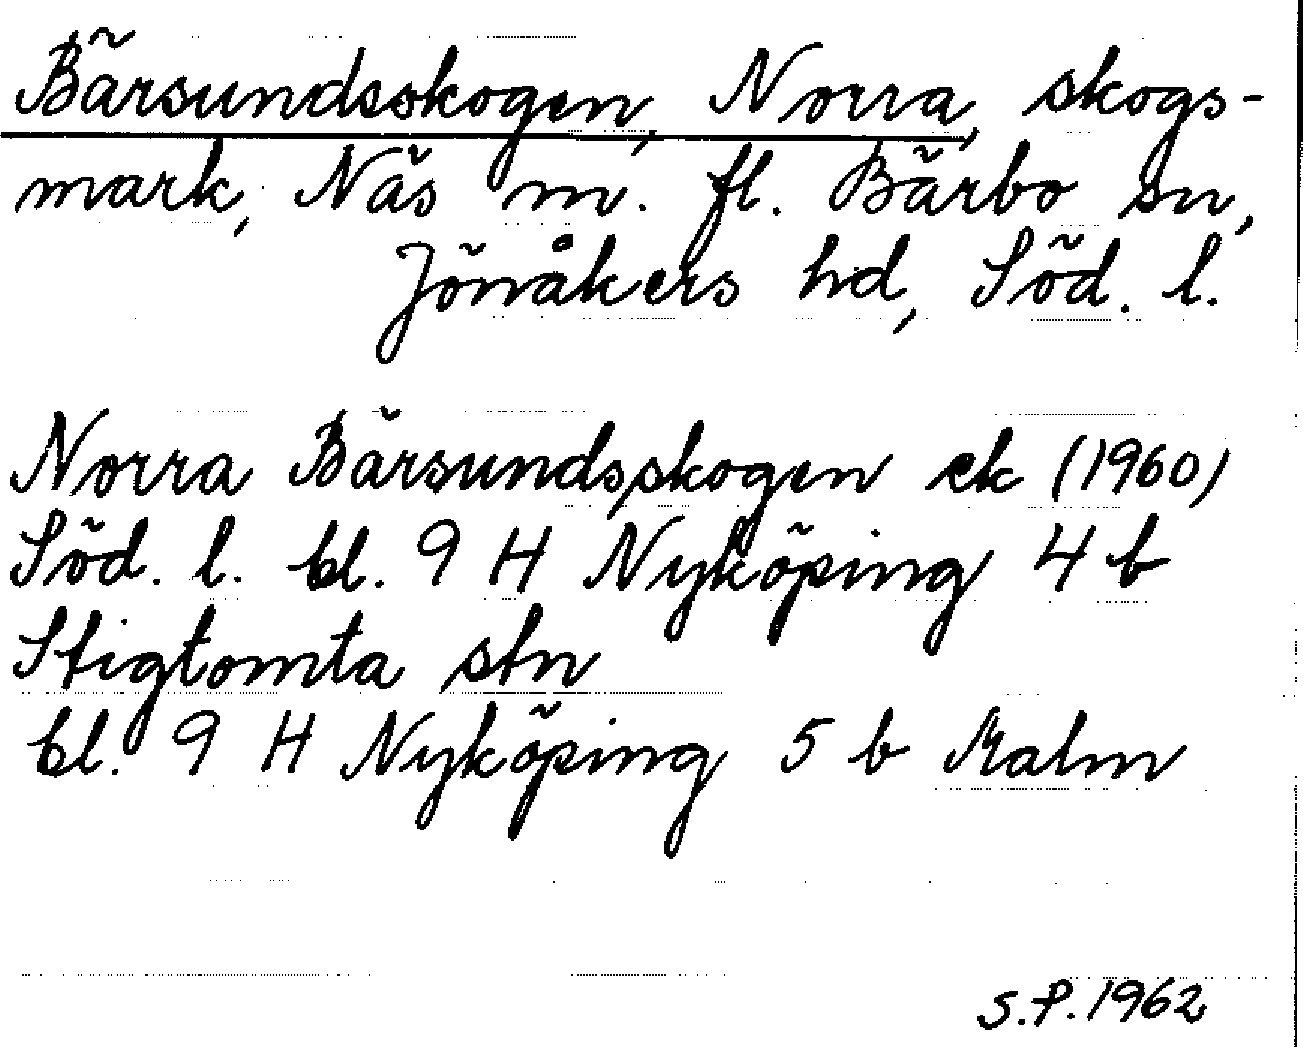 Bärsundsskogen, Norra, skogs-
mark, Näs m. fl. Bärbo sn,
Jönåkers hd, Söd. l.
Norra Bärsundsskogen ek (1960)
Söd. l. bl. 9 H Nyköping 4 b
Stigtomta stn
bl. 9 H Nyköping 5 b Malm
S.P. 1962